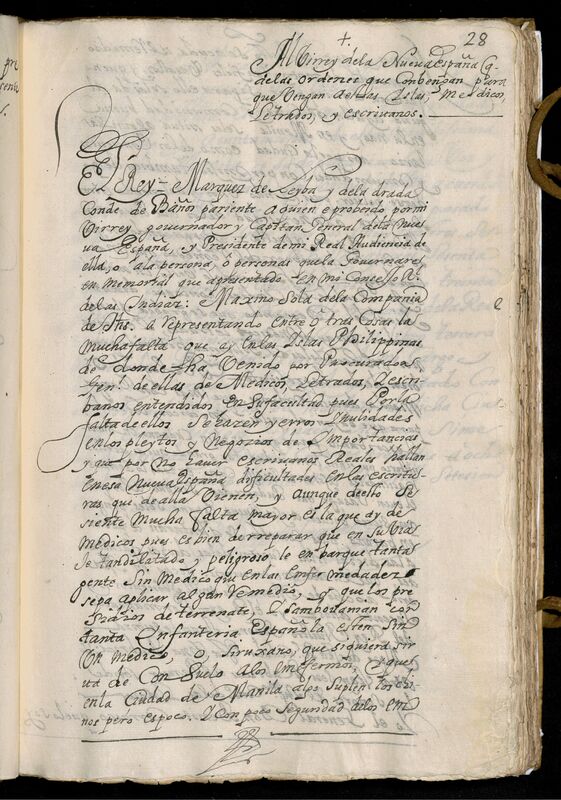 28
+.
Al Virrey dela Nueva España q
delas ordenes que Conbengan para
que Vengan aestas Islas, Medicos
Letrados, y escrivanos.
El Rey = Marquez de Leyba y dela drada
Conde de Baños pariente aquien eprobeido pormi
Virrey governador y Capitan General dela Nue
va España, y Presidente demi Real Audiencia de
ella, o ala persona, o personas quela Governares
en memorial que apresentado en mi Conssejo Rl
delas Indias: Maxmo Sola dela Compania
de Jhs. a representando entre otras Cosas la
Mucha falta que ay Enlas Islas Philippinas
de donde ha Venido por Procurador
Genl. de ellas de Medicos, Letrados, Y escri
banos entendidos en su facultad pues Porla
falta de ellos se hazen yerros y nulidades
enlos pleytos y Negozios de Importancias
y que por no haver escrivanos Reales hallan
Enesa Nueva España dificultades enlas escritu
ras que de alla Vienen, y aunque deesto se
siente mucha falta mayor es la que ay de
Medicos pues es bien de rreparar que en su Viaje
tan dilatado y peligroso se enbarque tanta
gente Sin Medico que Enlas Enfermedades
sepa aplicar algun remedio, y que los pre
sidios de terrenate, y Samboutamian con
tanta Ynfanteria Española esten sin
Un Medico, o, siruxano, que siquiera sir
va de Consuelo alos enfermos, y que
enla Ciudad de Manila alos suplen los chi
nos pero es poco. Y Con poca seguridad delos em